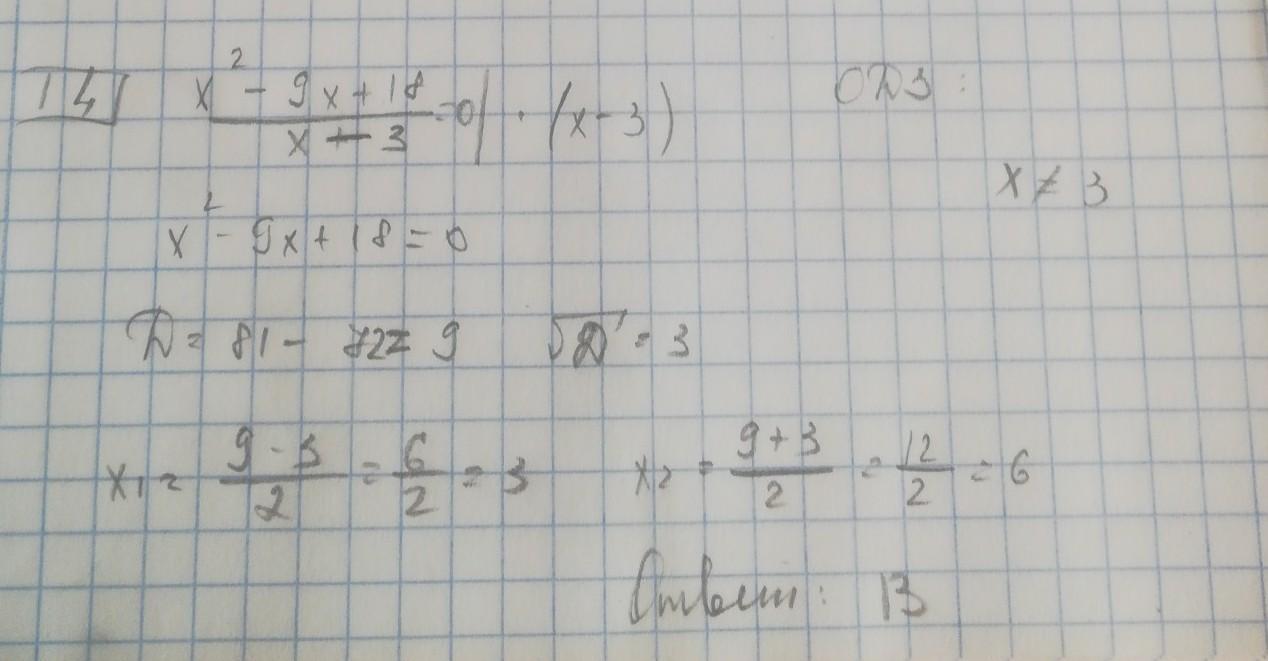 14 (x² - 9x + 18)/(x - 3) = 0 | · (x - 3) ОДЗ:
x ≠ 3
x² - 9x + 18 = 0
D = 81 - 72 = 9 √D = 3
x₁ = (9 - 3)/2 = 6/2 = 3 x₂ = (9 + 3)/2 = 12/2 = 6
Ответ: В